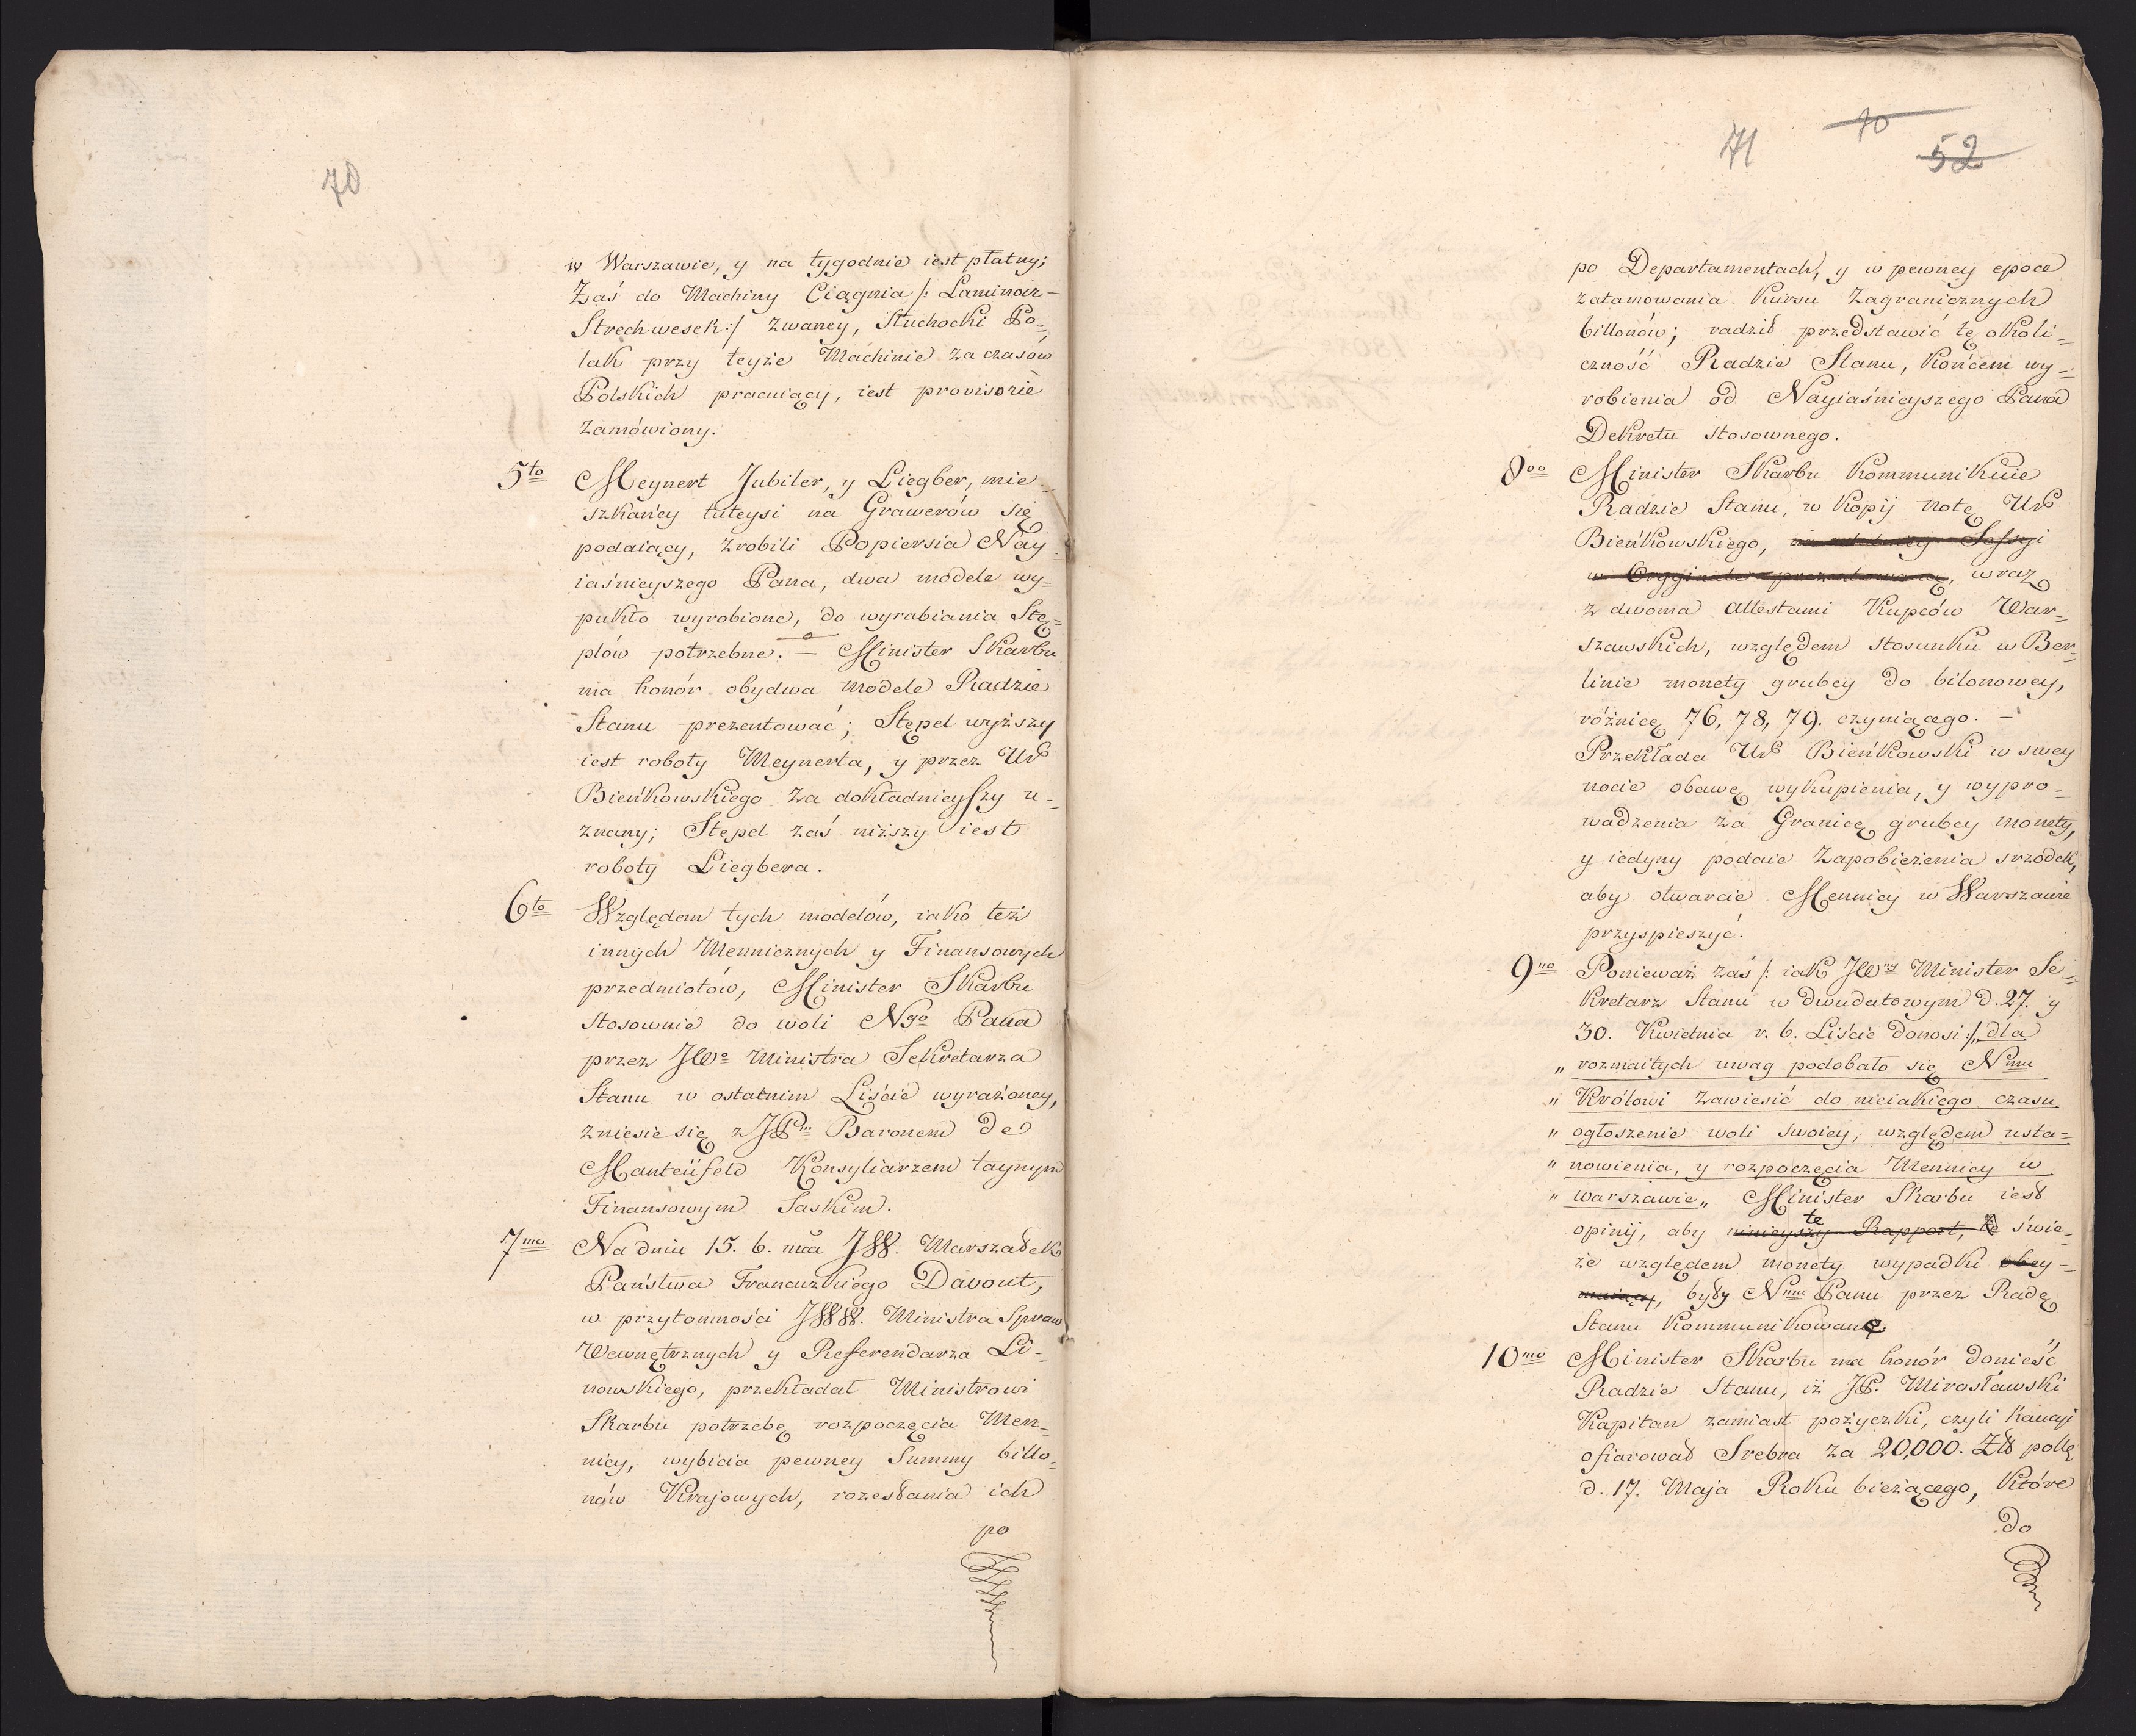 70
w Warszawie, y na tygodnie iest płatny;
Zaś do Machiny Ciągnia /: Laminoir-
Strechwesek :/ zwaney, Stuchocki Po=
lak przy teyże Machinie za czasów
Polskich pracuiący, iest provisorie
zamówiony.
5to Meynert Jubiler, y Liegber, mie
szkańcy tuteysi na Grawerów się
podaiący, zrobili Popiersia Nay=
iaśnieyszego Pana, dwa modele wy=
pukło wyrobione, do wyrabiania Stę=
plów potrzebne. — Minister Skarbu
ma honór obydwa modele Radzie
Stanu prezentować; Stępel wyższy
iest roboty Meynerta, y przez Ur
Bieńkowskiego za dokładnieyszy u=
znany; Stępel zaś niższy iest
roboty Liegbera.
6to Względem tych modelów, iako też
innych Mennicznych y Finansowych
przedmiotów, Minister Skarbu
stosownie do woli Ngo Pana
przez JWo Ministra Sekretarza
Stanu w ostatnim Liście wyrażoney,
zniesie się z JPm Baronem de
Manteüfeld Konsyliarzem taynym
Finansowym Saskim.
7mo Na dniu 15. b. mca JW. Marszałek
Państwa Francuzkiego Davout,
w przytomności JWW. Ministra Spraw
Wewnętrznych y Referendarza Li=
nowskiego, przekładał Ministrowi
Skarbu potrzebę rozpoczęcia Men=
nicy, wybicia pewney Summy billo=
nów Krajowych, rozesłania ich
po
71 70 52
po Departamentach, y w pewney epoce
zatamowania Kursu Zagranicznych
billonów; radził przedstawić tę okoli=
czność Radzie Stanu, końcem wy=
robienia od Nayiaśnieyszego Pana
Dekretu stosownego.
8vo Minister Skarbu kommunikuie
Radzie Stanu, w Kopij notę Ur
Bieńkowskiego, Sessyi
w Oryginale prezentowaną, wraz
z dwoma attestami Kupców War=
szawskich, względem stosunku w Ber=
linie monety grubey do bilonowey,
różnicę 76, 78, 79. czyniącego. —
Przekłada Ur Bieńkowski w swey
nocie obawę wykupienia, y wypro=
wadzenia za Granicę grubey monety,
y iedyny podaie zapobieżenia srzodek,
aby otwarcie Mennicy w Warszawie
przyspieszyć.
9no Ponieważ zaś /: iak JWny Minister Se=
kretarz Stanu w dwudatowym d. 27. y
30. Kwietnia r. b. Liście donosi :/ „dla
„ rozmaitych uwag podobało się Nmu
„ Królowi zawiesić do nieiakiego czasu
„ ogłoszenie woli swoiey, względem usta=
„ nowienia, y rozpoczęcia Mennicy w
„ warszawie„ Minister Skarbu iest
opinij, aby te ninieyszy Rapport, świe=
że względem monety wypadki obey=
muiący, były Nmu Panu przez Radę
Stanu kommunikowane.
10mo Minister Skarbu ma honór donieść
Radzie Stanu, iż JP. Mirosławski
Kapitan zamiast pożyczki, czyli Kaucyi
ofiarował Srebra za 20,000. Zł polę
d. 17. Maja Roku bieżącego, które
do